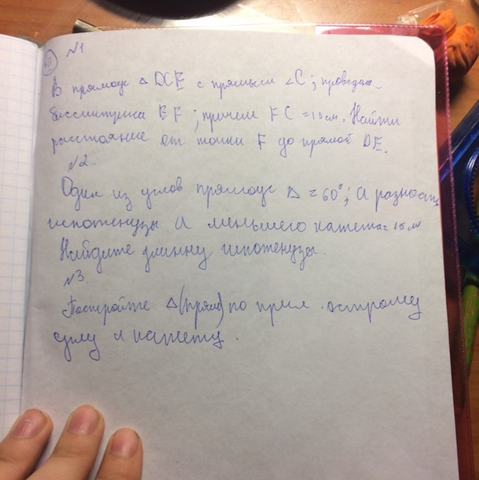 №1
В прямоуг △ DCE с прямым ∠C; проведена
биссиктриса EF; причем FC = 13 см. Найти
расстояние от точки F до прямой DE.
№2.
Один из углов прямоуг △ = 60°; а разность
гипотенузы и меньшего катета = 15 см
Найдите длинну гипотенузы.
№3.
Постройте △(прям) по прил. острому
углу и катету.